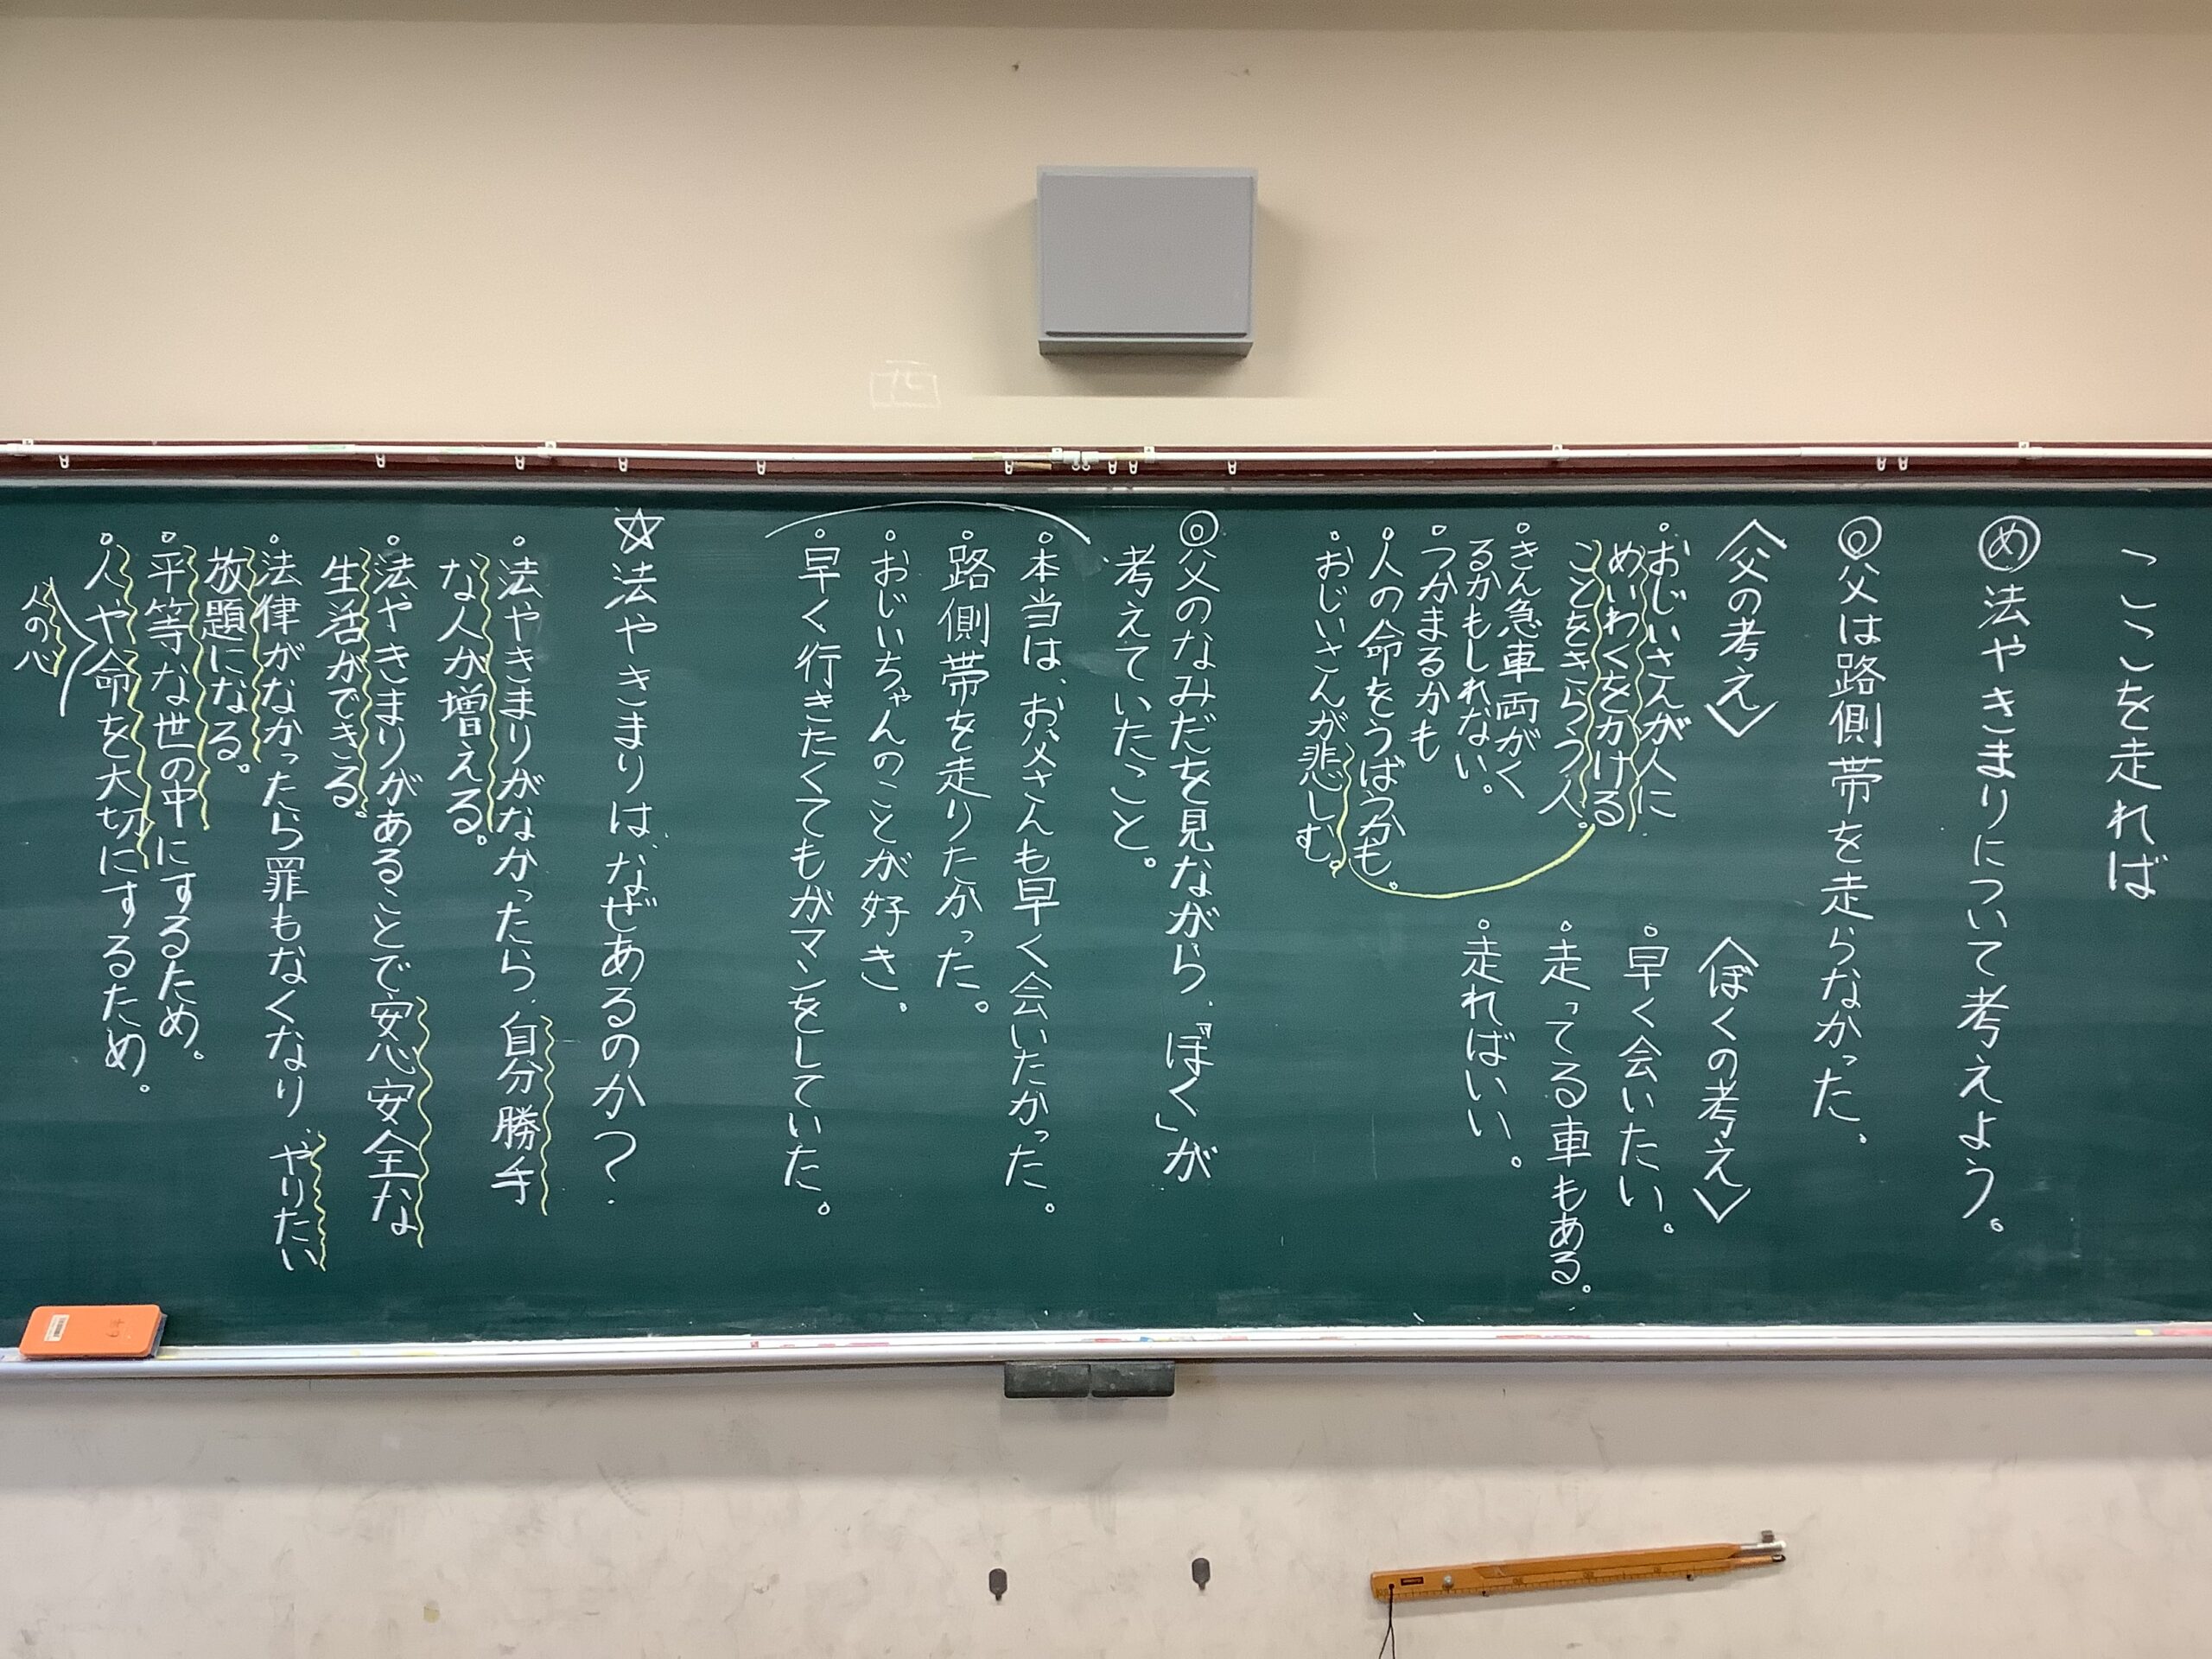 ここを走れば
め 法やきまりについて考えよう。
◎父は路側帯を走らなかった。
〈父の考え〉
・おじいさんが人に
めいわくをかける
ことをきらう人。
・きん急車両がく
るかもしれない。
・つかまるかも
・人の命をうばうかも。
・おじいさんが悲しむ。
〈ぼくの考え〉
・早く会いたい。
・走ってる車もある。
・走ればいい。
◎父のなみだを見ながら、「ぼく」が
考えていたこと。
・本当は、お父さんも早く会いたかった。
・路側帯を走りたかった。
・おじいちゃんのことが好き。
・早く行きたくてもガマンをしていた。
☆法やきまりは、なぜあるのか?
・法やきまりがなかったら、自分勝手
な人が増える。
・法やきまりがあることで安心安全な
生活ができる。
・法律がなかったら罪もなくなり、やりたい
放題になる。
・平等な世の中にするため。
・人や命を大切にするため。
人の心